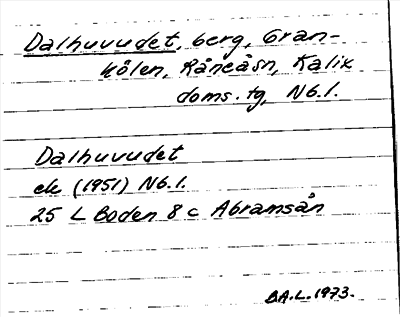 Dalhuvudet, berg, Gran-
kölen, Råneåsn, Kalix
doms. tg, Nb.l.
Dalhuvudet
ek (1951) Nb.l.
25 L Boden 8 c Abramsån
D.A.L. 1973.